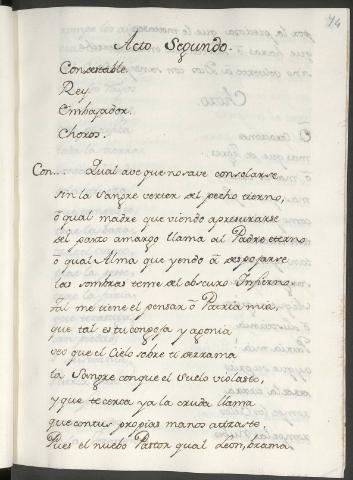 74
Acto Segundo.
Condestable.
Rey.
Embajador.
Choros.
Con... Qual ave que no save consolarse
sin la sangre verter del pecho tierno,
ò qual madre que viendo apresurarse
del parto amargo llama al Padre eterno
ò qual Alma que yendo à despojarse
las sombras teme del obscuro Infierno
tal me tiene el pensar ò Patria mia,
que tal es tu congoja y agonia
veo que el Cielo sobre ti derrama
la Sangre con que el Suelo violaste,
y que te cerca ya la cruda llama
que con tus propias manos atizaste,
Pues el nuebo Pastor qual Leon, brama